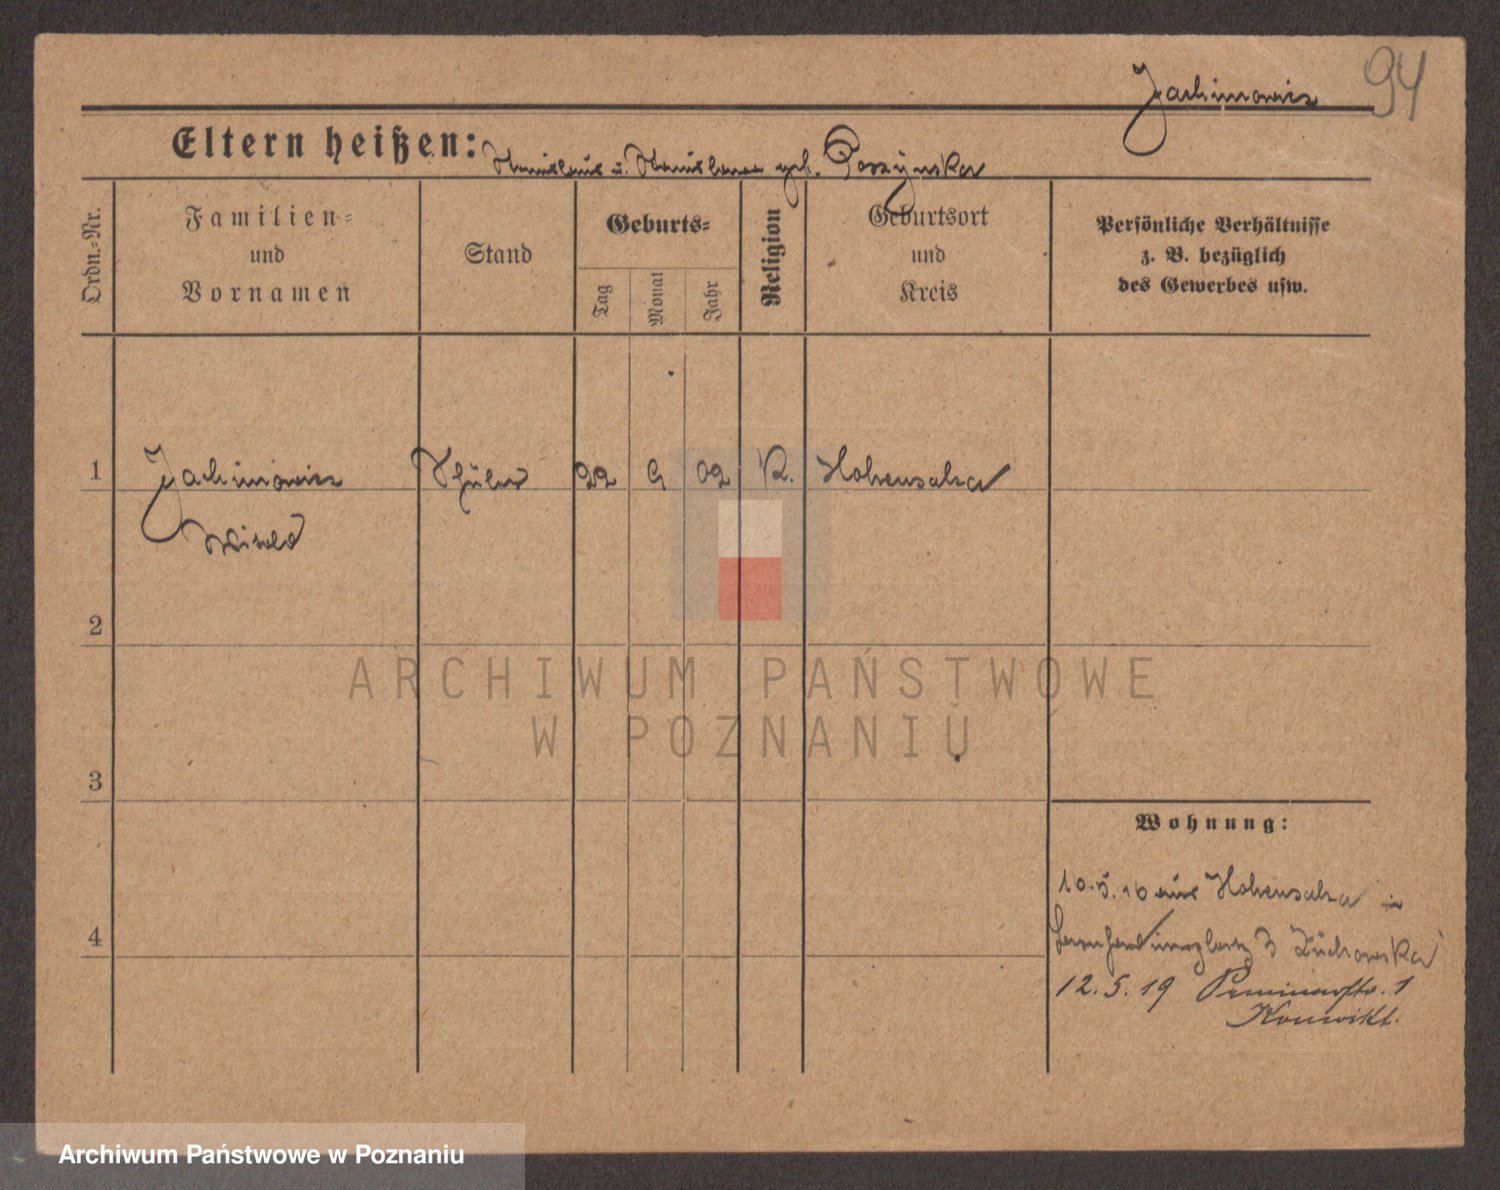 Jachimowicz 94
Eltern heißen: Stanislaus u. Stanislawa geb.
Ordn.-Nr.
Familien-
und
Vornamen
Stand
Geburts-
Tag
Monat
Jahr
Religion
Geburtsort
und
Kreis
Persönliche Verhältnisse
z. B. bezüglich
des Gewerbes usw.
1 Jachimowicz Schüler 22 9 02 K. Hohensalza
Witold
2
ARCHIWUM PAŃSTWOWE
W POZNANIU
3
Wohnung:
10.5.16 aus Hohensalza in
4
3
12.5.19 Seminarstr. 1
Konvikt.
Archiwum Państwowe w Poznaniu